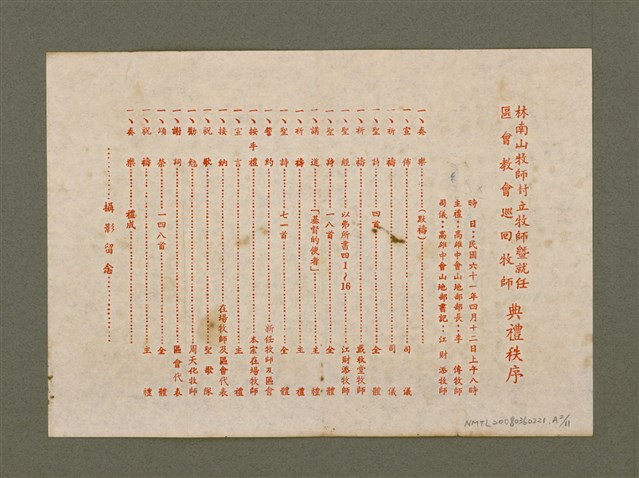 林南山牧師封立牧師暨就任
區會教會巡回牧師
典禮秩序
時日：民國六十一年四月十二日上午八時
主禮：高雄中會山地部部長：李 傳牧師
司儀：高雄中會山地部書記：江財添牧師
一、奏樂……（默禱）
一、宣佈……司儀
一、祈禱……司儀
一、聖詩……四首……全體
一、祈禱……牧師
一、聖經……以弗所書四1～16……江財添牧師
一、聖詩……一八首……全體
一、講道……「基督的使者」……主禮
一、祈禱……主禮
一、聖詩……七一首……全體
一、誓約……新任牧師及區會
一、按手禮……本宗在場牧師
一、宣言……主禮
一、接納……在場牧師及區會代表
一、祝歌……聖歌隊
一、勸勉……周天化牧師
一、謝詞……區會代表
一、頌榮……一四八首……全體
一、祝禱……主禮
一、奏樂……禮成
……攝影留念……
NMTL20080360221.A2/11